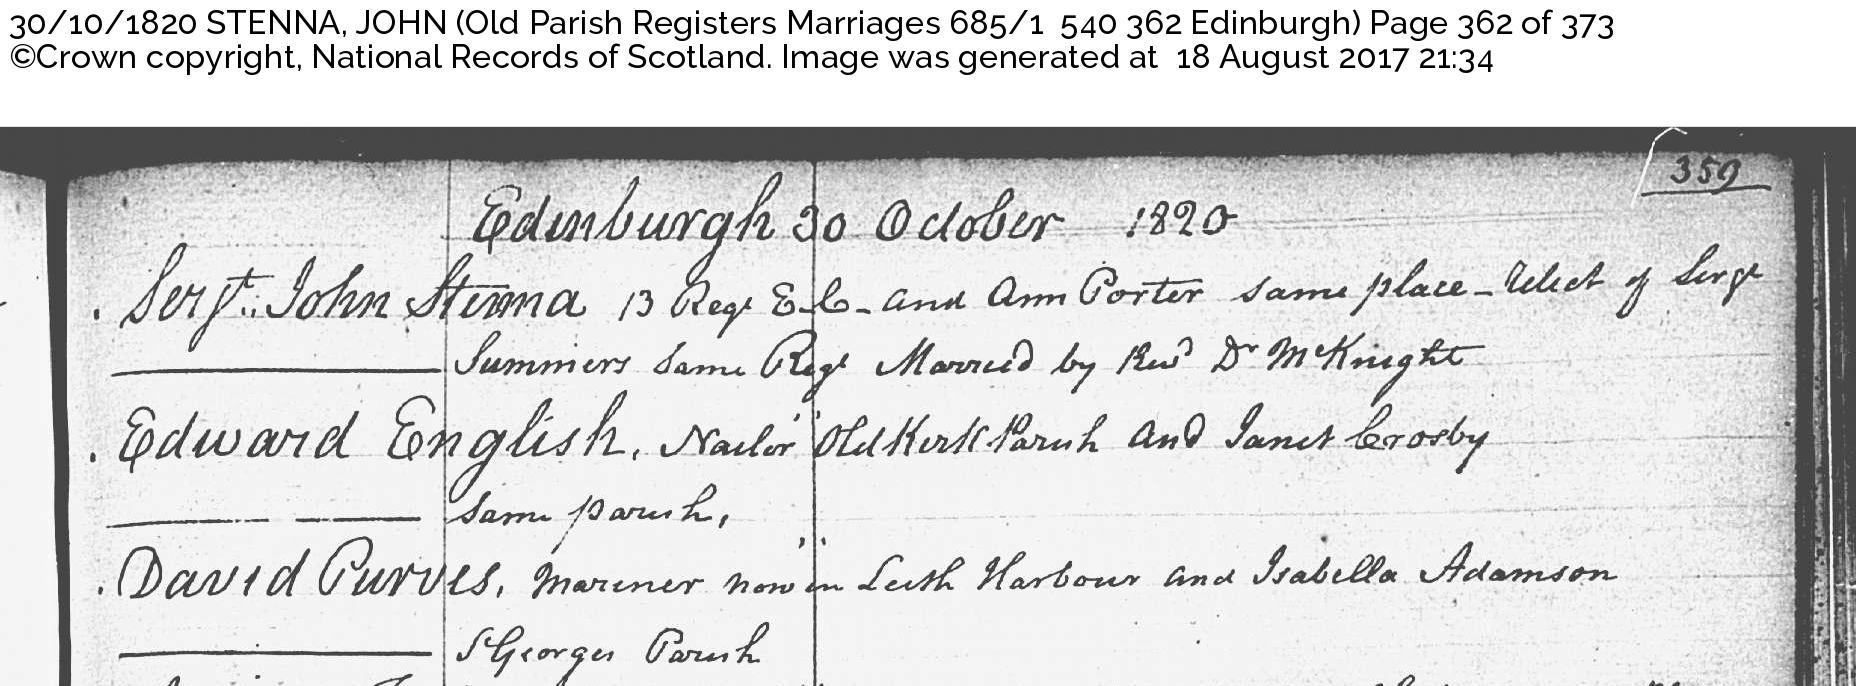 30/10/1820 STENNA, JOHN (Old Parish Registers Marriages 685/1 540 362 Edinburgh) Page 362 of 373
©Crown copyright, National Records of Scotland. Image was generated at 18 August 2017 21:34
359
Edinburgh 30 October 1820
Sergt. John Stenna 13 Regt E.C. and Ann Porter same place - Relict of Sergt
Summers same Regt Married by Revd Dr McKnight
Edward English, Nailor Old Kirk Parish and Janet Crosby
same parish,
David Purves, Mariner now in Leith Harbour and Isabella Adamson
St Georges Parish